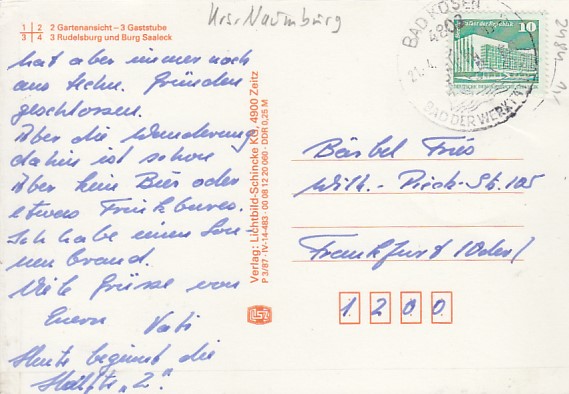 1 | 2 2 Gartenansicht – 3 Gaststube
3 | 4 3 Rudelsburg und Burg Saaleck
Krsr Naumburg
hat aber immer noch
aus techn. Gründen
geschlossen.
Aber die Wanderung
dahin ist schon
Aber kein Bier oder
etwas Trinkbares.
Ich habe einen Son
nen brand.
Viele Grüsse von
Euern Vati
Heute beginnt die
Hälfte „2."
Verlag: Lichtbild-Schincke KG, 4900 Zeitz
P 3/87 · IV-14-483 · 00 08 12 20 060 · DDR 0,25 M
BAD KÖSEN
4803
BAD DER WERKTÄ
10
Bärbel Fries
Wilh.-Pieck-St. 105
Frankfurt (Oder)
1 2 0 0